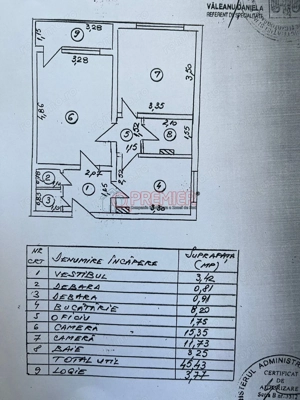 VĂLEANU DANIELA
REFERENT DE SPECIALITATE
3,28
9
1,15
3,28
7
3,50
4,86
6
3,35
2,10
5
1,52
8
1,55
1,15
2,07
2,52
2
3
0,83
1
1,65
4
PREMIER
3,30
NR CRT DENUMIRE ÎNCĂPERE SUPRAFAȚA (MP)
1 VESTIBUL 3,42
2 DEBARA 0,81
3 DEBARA 0,91
4 BUCĂTĂRIE 8,20
5 OFICIU 1,75
6 CAMERĂ 15,35
7 CAMERĂ 11,73
8 BAIE 3,25
TOTAL UTIL 45,43
9 LOGIE 3,77
MINISTERUL ADMINISTR
CERTIFICAT
DE
AUTORIZARE